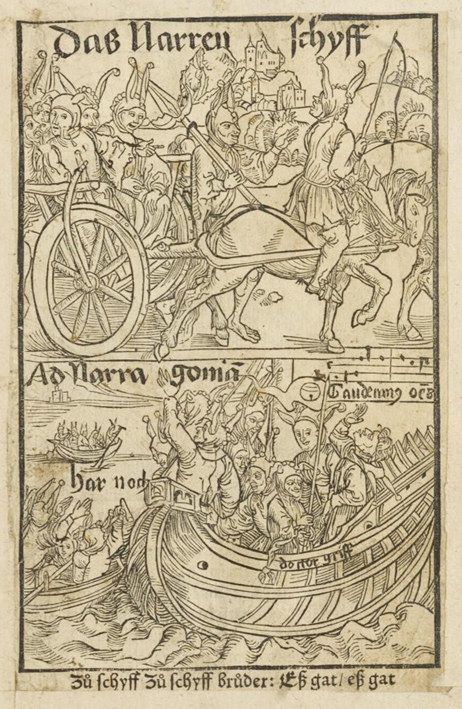 Das Narren schyff
Ad Narragoniā
Gaudeamꝯ oēs
har noch
doctor griff
Zů schyff Zů schyff brůder: Eß gat/ eß gat